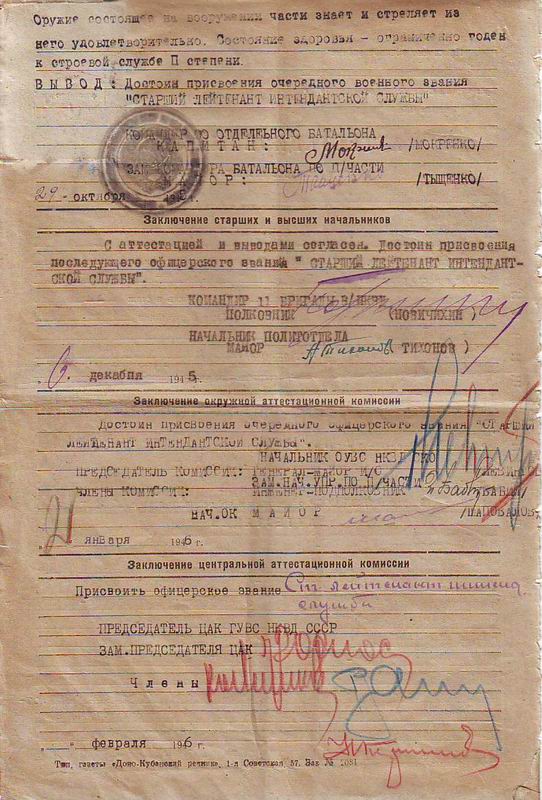 Оружие состоящее на вооружении части знает и стреляет из
него удовлетворительно. Состояние здоровья - ограниченно годен
к строевой службе II степени.
ВЫВОД: Достоин присвоения очередного военного звания
"СТАРШИЙ ЛЕЙТЕНАНТ ИНТЕНДАНТСКОЙ СЛУЖБЫ"
ОТДЕЛЬНОГО БАТАЛЬОНА
КАПИТАН: /МОКРЕНКО/
БАТАЛЬОНА ПО П/ЧАСТИ
/ТЫЩЕНКО/
29 - октября
Заключение старших и высших начальников
С аттестацией и выводами согласен. Достоин присвоения
последующего офицерского звания " СТАРШИЙ ЛЕЙТЕНАНТ ИНТЕНДАНТ-
СКОЙ СЛУЖБЫ".
КОМАНДИР 11 БРИГАДЫ
ПОЛКОВНИК (НОВИЧИХИН)
НАЧАЛЬНИК ПОЛИТОТДЕЛА
МАЙОР А Тихонов ТИХОНОВ )
"6" декабря 1945 г.
Заключение окружной аттестационной комиссии
Достоин присвоения очередного офицерского звания "СТАРШИЙ
ЛЕЙТЕНАНТ ИНТЕНДАНТСКОЙ СЛУЖБЫ".
НАЧАЛЬНИК ОУВС НКВД
ПРЕДСЕДАТЕЛЬ КОМИССИИ: ГЕНЕРАЛ-МАЙОР И/С
ЗАМ.НАЧ.УПР.ПО П/ЧАСТИ
ЧЛЕНЫ КОМИССИИ: ИНЖЕНЕР-ПОДПОЛКОВНИК
НАЧ.ОК МАЙОР /ШАПОВАЛОВ/
"21" января 1946 г.
Заключение центральной аттестационной комиссии
Присвоить офицерское звание Ст. лейтенант
службы
ПРЕДСЕДАТЕЛЬ ЦАК ГУВС НКВД СССР
ЗАМ.ПРЕДСЕДАТЕЛЯ ЦАК
Члены
" " февраля 1946 г.
Тип. газеты «Доно-Кубанский речник», 1-я Советская, 57. Зак № 1081